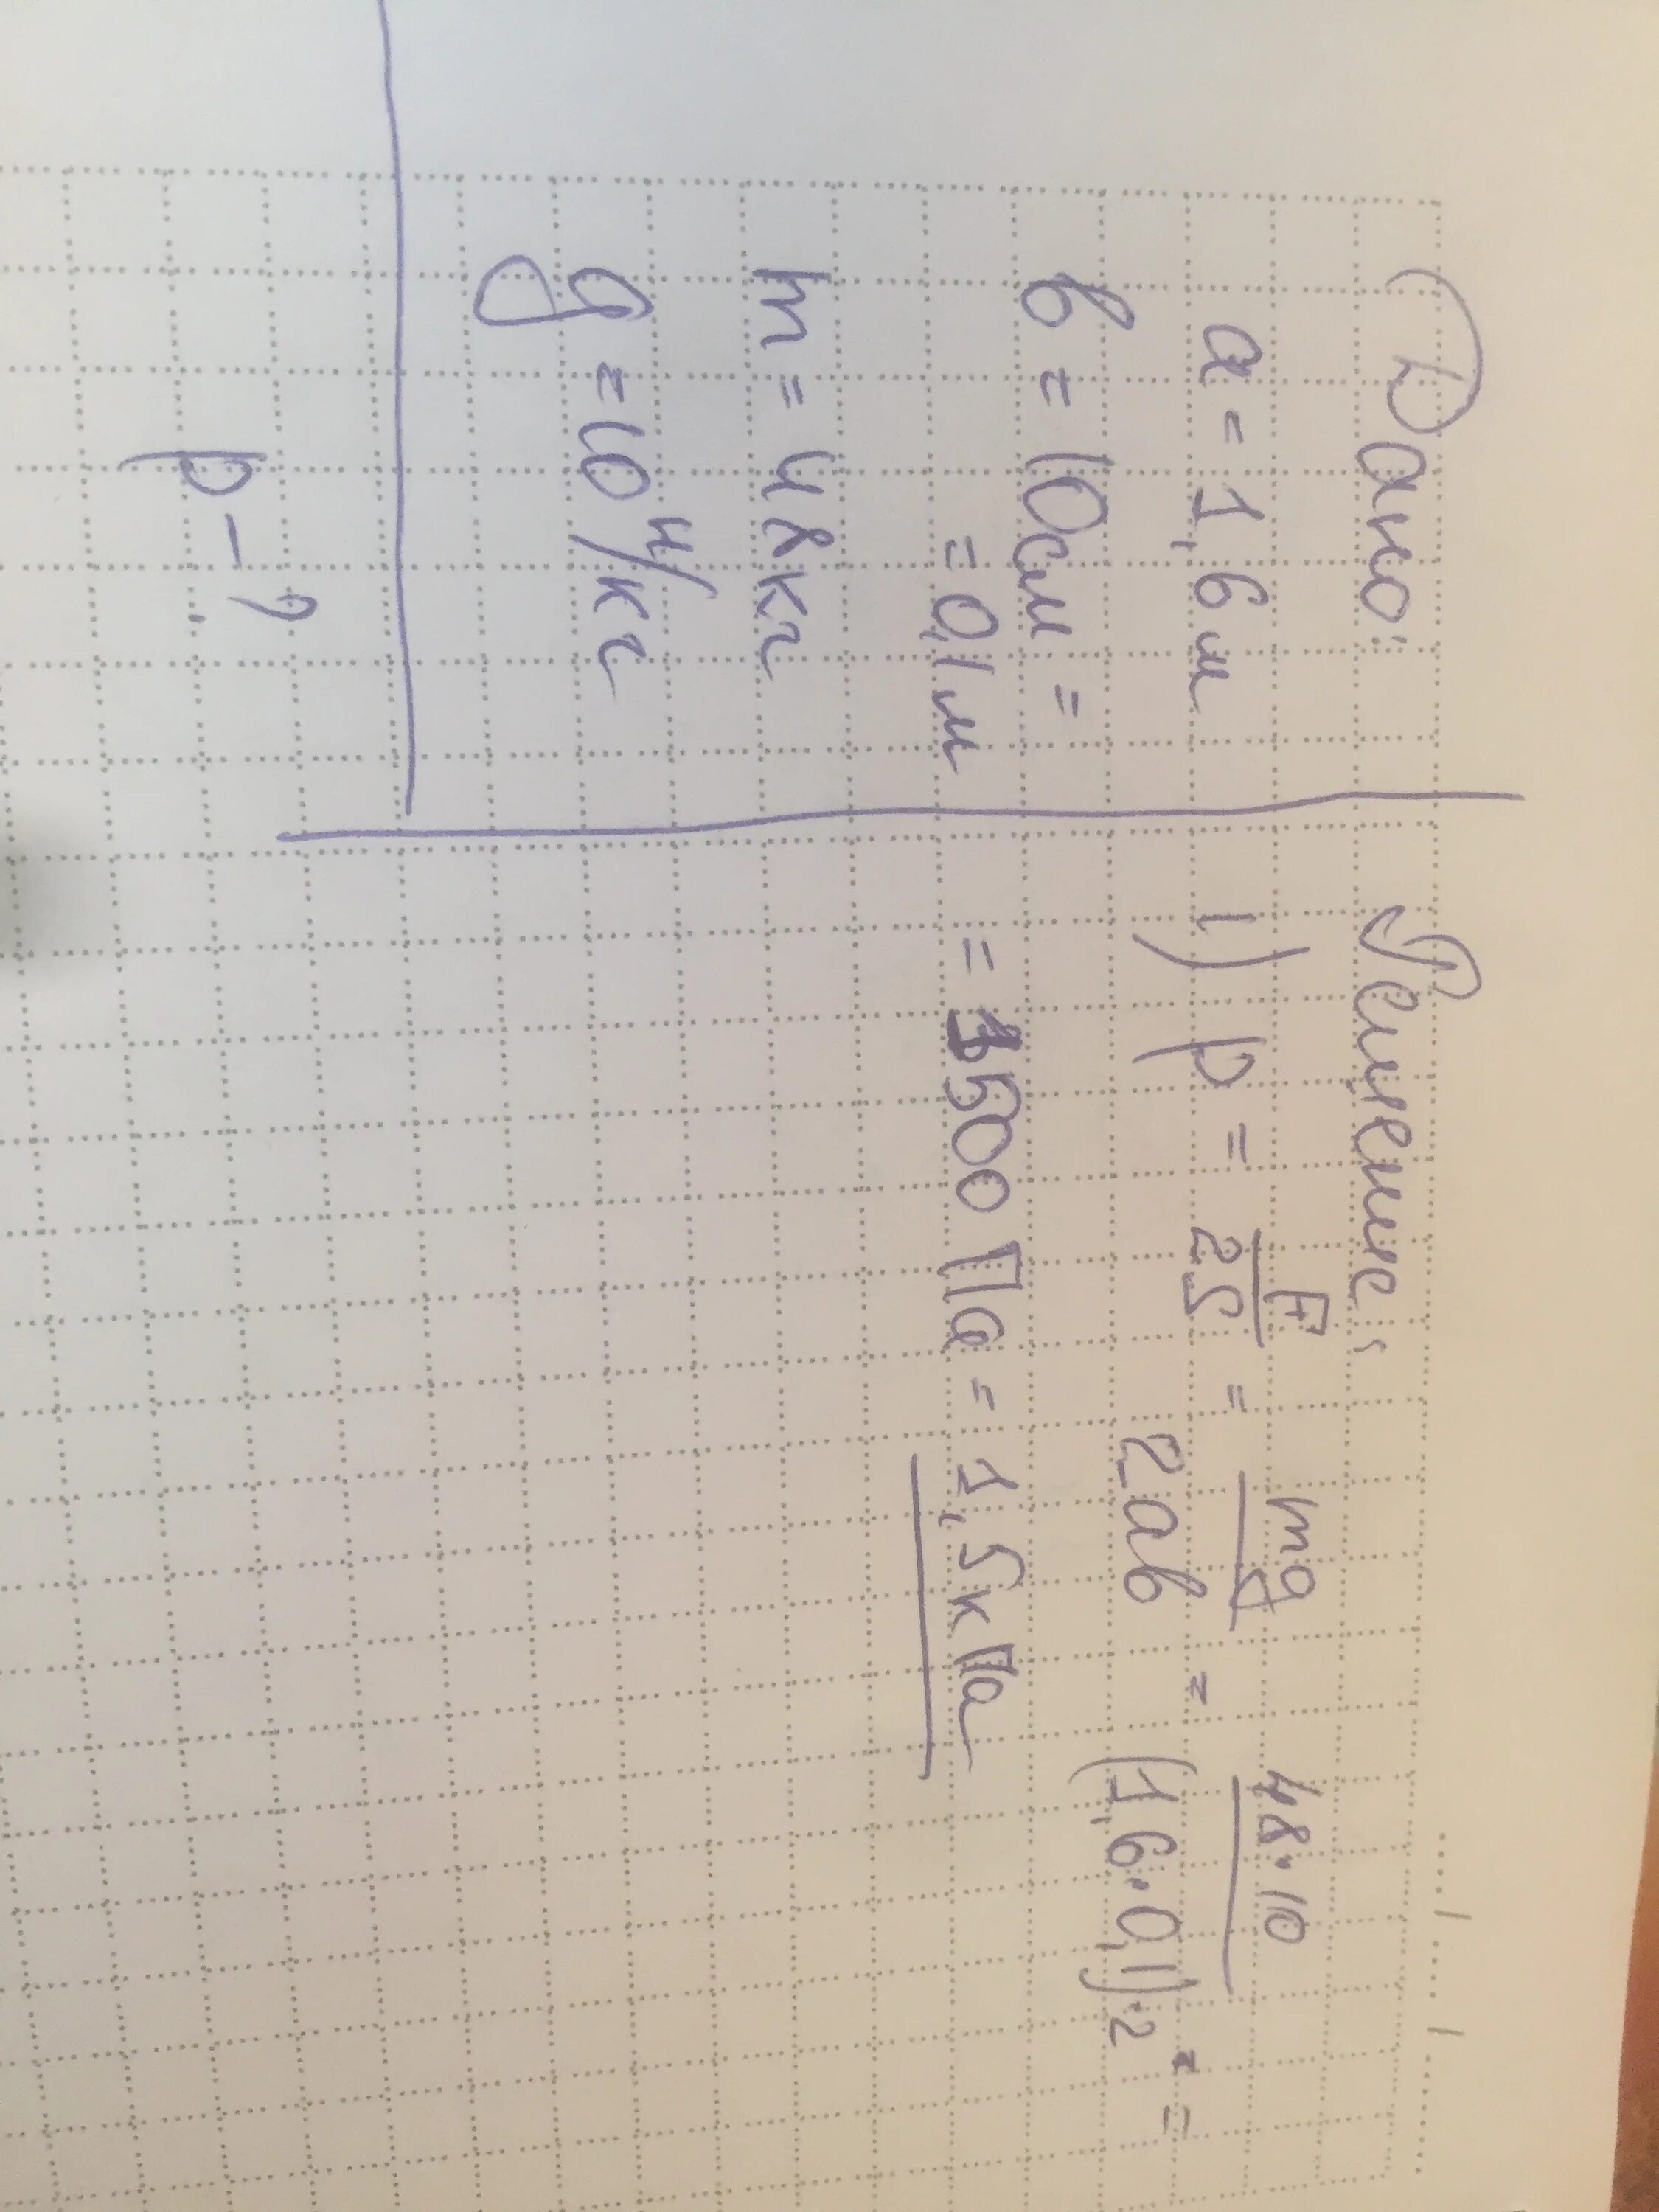 Дано:
a = 1,6 м
b = 10см =
= 0,1 м
m = 48 кг
g = 10 Н/кг
p - ?
Решение:
1) p = F/2S = mg/2ab = 48·10/(1,6·0,1)·2 = =
= 1500 Па = 1,5 кПа